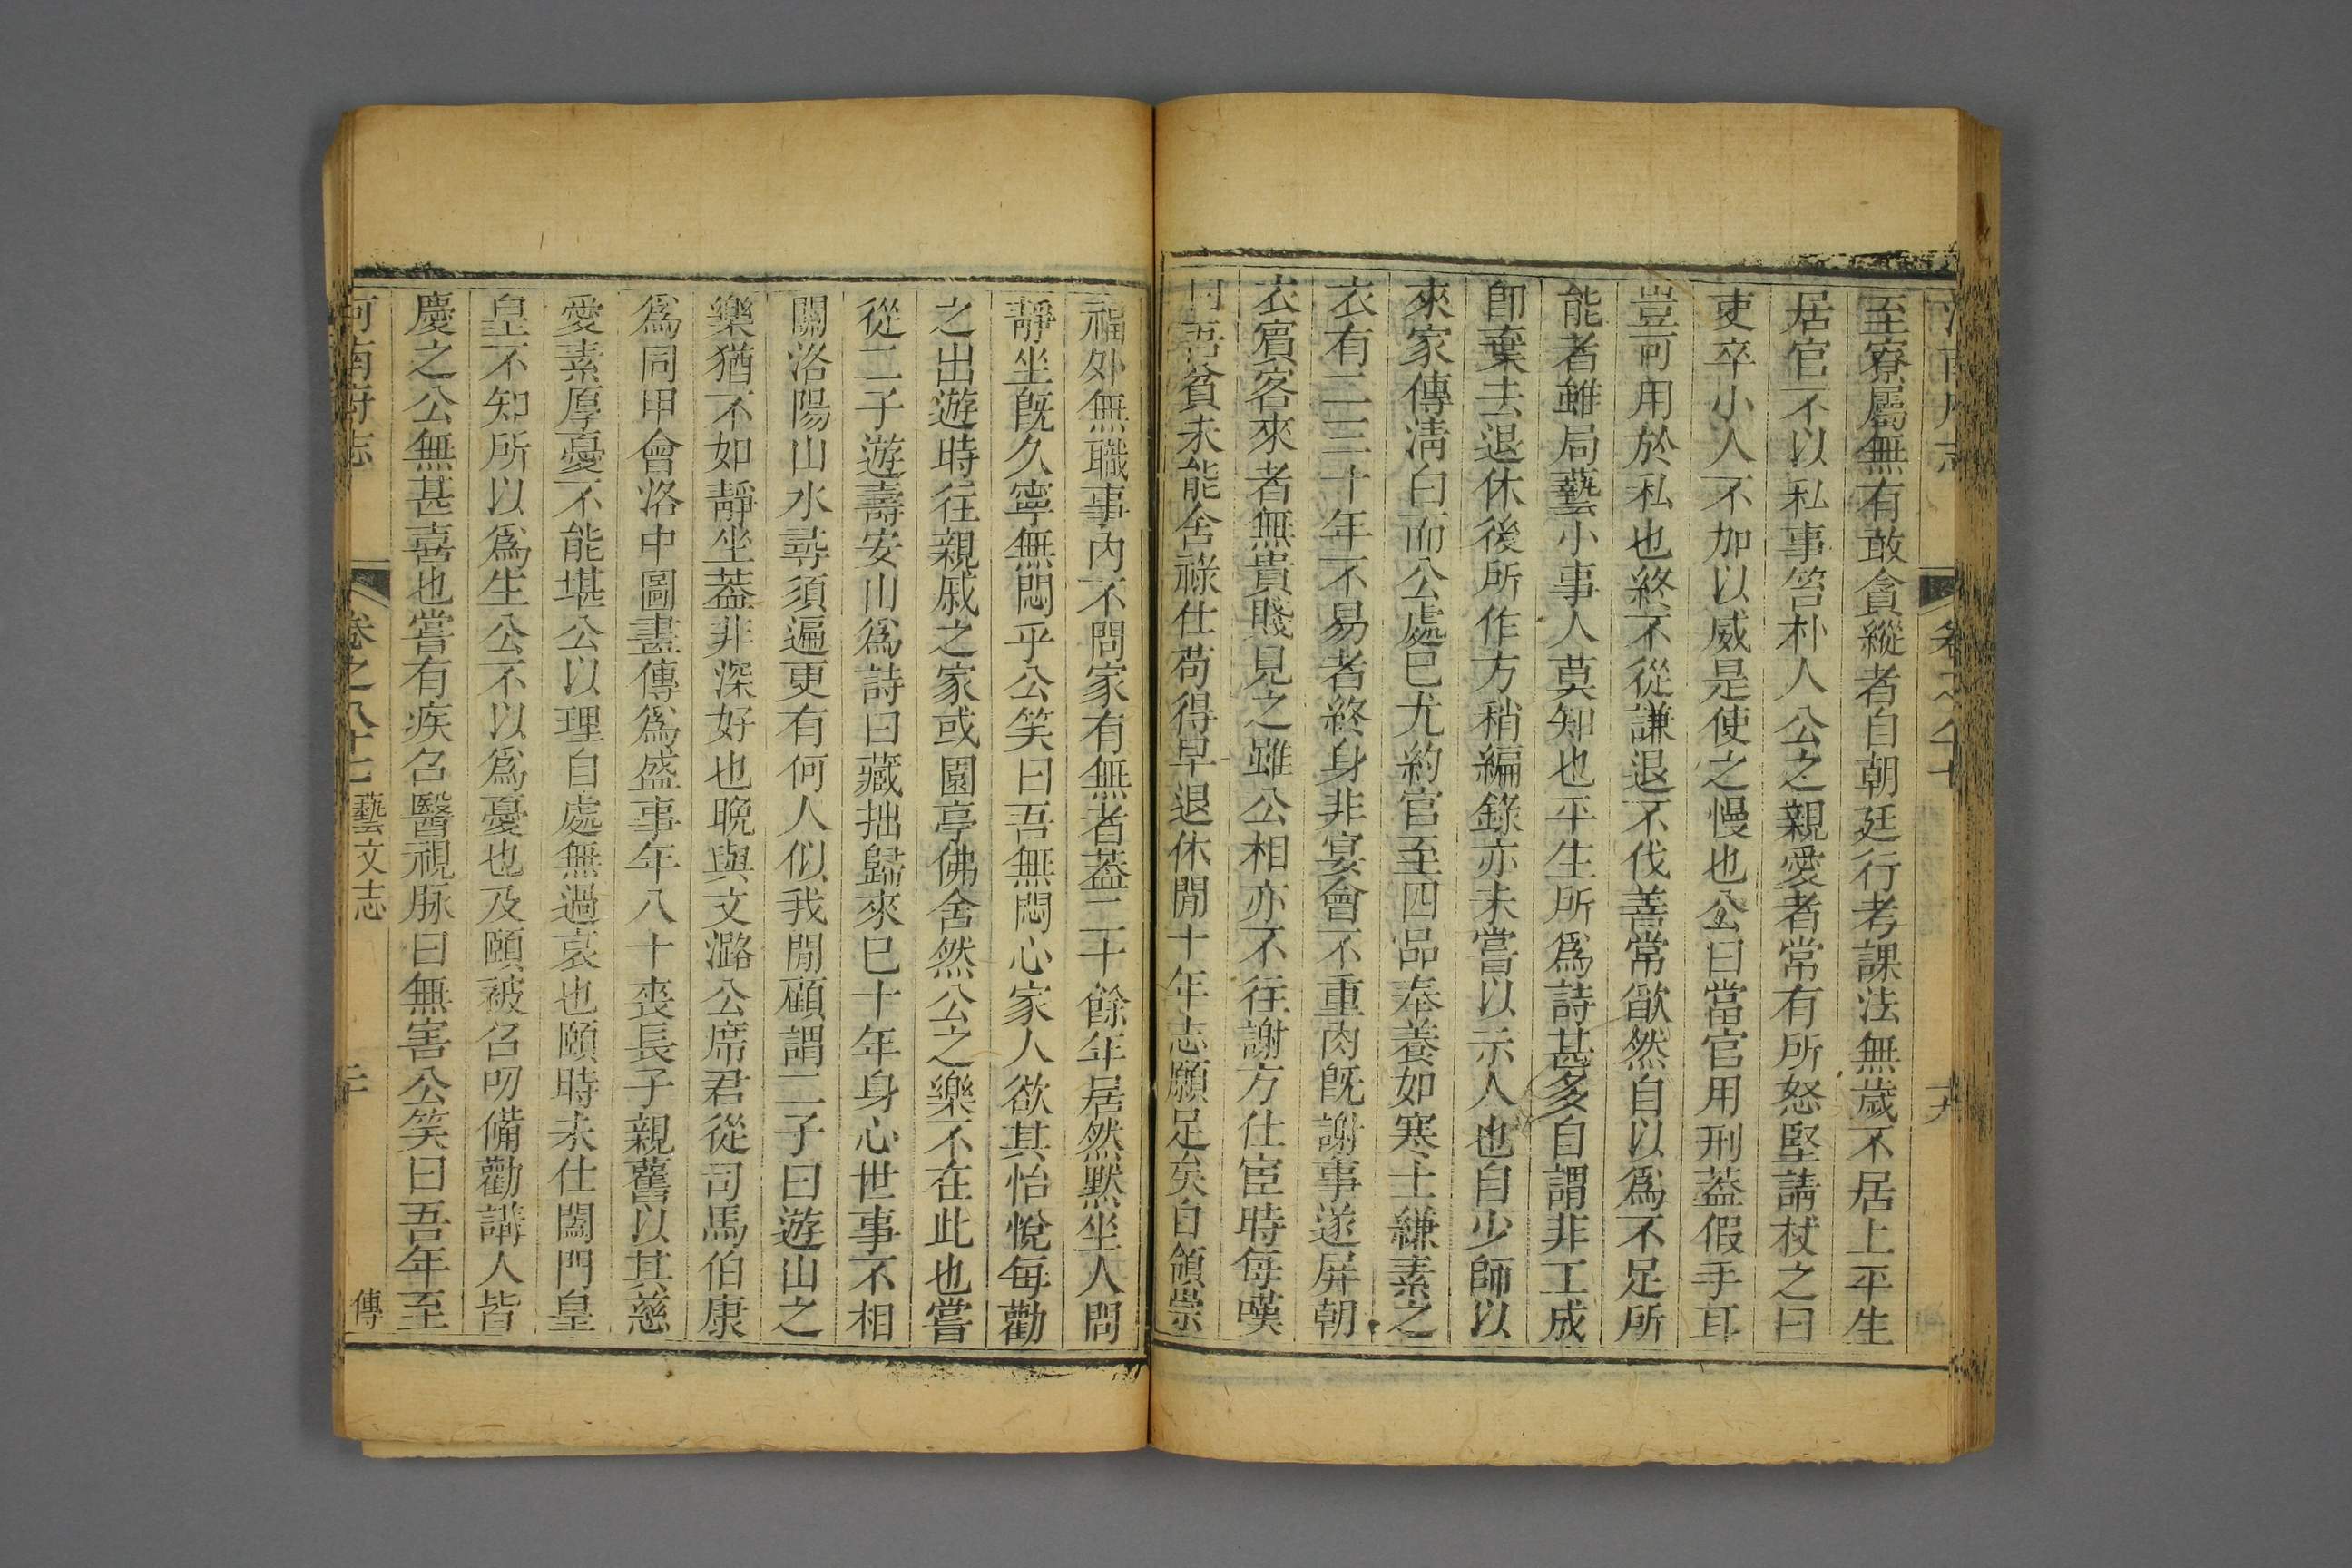 至寮屬無有敢貪縱者自朝廷行考課法無歲不居上平生
居官不以私事笞朴人公之親愛者常有所怒堅請杖之曰
吏卒小人不加以威是使之慢也公曰當官用刑葢假手耳
豈可用於私也終不從謙退不伐善常欿然自以爲不足所
能者雖局藝小事人莫知也平生所爲詩甚多自謂非工成
卽棄去退休後所作方稍編錄亦未嘗以示人也自少師以
來家傳淸白而公處己尤約官至四品奉養如寒士縑素之
衣有二三十年不易者終身非宴會不重肉旣謝事遂屛朝
衣賓客來者無貴賤見之雖公相亦不往謝方仕宦時每嘆
曰吾貧未能舍祿仕苟得早退休閒十年志願足矣自領崇
福外無職事內不問家有無者葢二十餘年居然默坐人問
靜坐旣久寧無悶乎公笑曰吾無悶心家人欲其怡悅每勸
之出遊時往親戚之家或園亭佛舍然公之樂不在此也嘗
從二子遊壽安山爲詩曰藏拙歸來已十年身心世事不相
關洛陽山水尋須遍更有何人似我閒顧謂二子曰遊山之
樂猶不如靜坐葢非深好也晩與文潞公席君從司馬伯康
爲同甲會洛中圖畫傳爲盛事年八十喪長子親舊以其慈
愛素厚憂不能堪公以理自處無過哀也頤時未仕闔門皇
皇不知所以爲生公不以爲憂也及頤被召叨備勸講人皆
慶之公無甚喜也嘗有疾召醫視脉曰無害公笑曰吾年至
河南府志
卷之八十七
藝文志
二十
傳